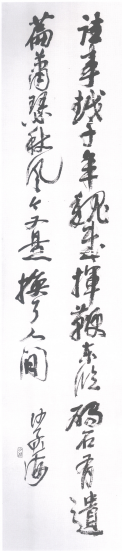 往事越千年魏武挥鞭东临碣石有遗
篇萧瑟秋风今又是换了人间
沙孟海